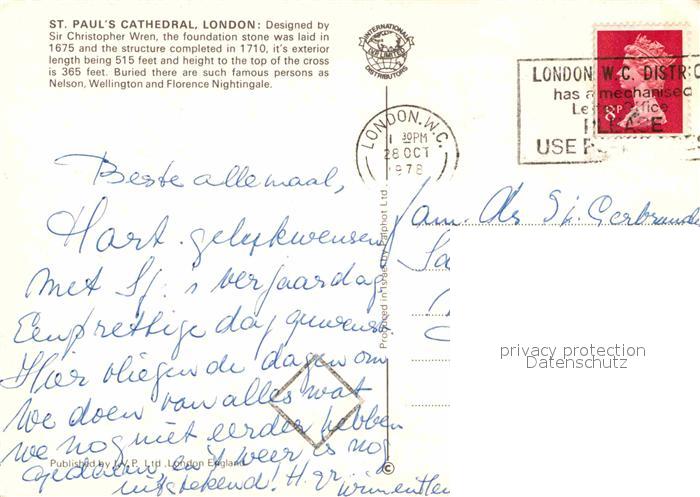 ST. PAUL'S CATHEDRAL, LONDON: Designed by
Sir Christopher Wren, the foundation stone was laid in
1675 and the structure completed in 1710, it's exterior
length being 515 feet and height to the top of the cross
is 365 feet. Buried there are such famous persons as
Nelson, Wellington and Florence Nightingale.
INTERNATIONAL
DISTRIBUTORS
LONDON. W.C.
1 30PM
28 OCT
1978
LONDON W.C. DISTRIC
has a mechanised
Office
USE
8P
Beste allemaal,
Hart. gelukwensen
met Sj.'s verjaardag
Een prettige dag gewenst.
Hier vliegen de dagen om
We doen van alles wat
we nog niet eerder hebben
gedaan, en 't weer is nog
uitstekend! H. gr.
Wim en
Fam. Gerbrand
Produced in Israel by Palphot Ltd.
Published by Ltd., London England
©
privacy protection
Datenschutz